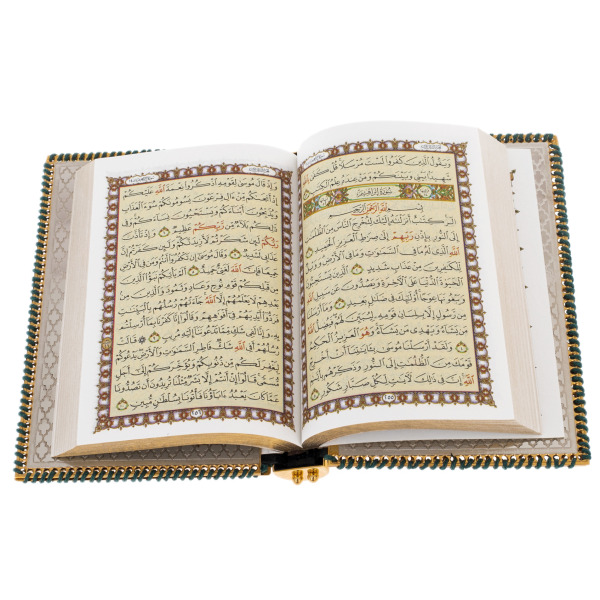 وَيَقُولُ الَّذِينَ كَفَرُوا لَسْتَ مُرْسَلًا قُلْ كَفَىٰ بِاللَّهِ
شَهِيدًا بَيْنِي وَبَيْنَكُمْ وَمَنْ عِندَهُ عِلْمُ الْكِتَابِ
سُورَةُ إِبْرَاهِيمَ
بِسْمِ اللَّهِ الرَّحْمَٰنِ الرَّحِيمِ
الر كِتَابٌ أَنزَلْنَاهُ إِلَيْكَ لِتُخْرِجَ النَّاسَ مِنَ الظُّلُمَاتِ
إِلَى النُّورِ بِإِذْنِ رَبِّهِمْ إِلَىٰ صِرَاطِ الْعَزِيزِ الْحَمِيدِ ١
اللَّهِ الَّذِي لَهُ مَا فِي السَّمَاوَاتِ وَمَا فِي الْأَرْضِ وَوَيْلٌ
لِّلْكَافِرِينَ مِنْ عَذَابٍ شَدِيدٍ ٢ الَّذِينَ يَسْتَحِبُّونَ
الْحَيَاةَ الدُّنْيَا عَلَى الْآخِرَةِ وَيَصُدُّونَ عَن سَبِيلِ اللَّهِ
وَيَبْغُونَهَا عِوَجًا أُولَٰئِكَ فِي ضَلَالٍ بَعِيدٍ ٣ وَمَا أَرْسَلْنَا
مِن رَّسُولٍ إِلَّا بِلِسَانِ قَوْمِهِ لِيُبَيِّنَ لَهُمْ فَيُضِلُّ اللَّهُ
مَن يَشَاءُ وَيَهْدِي مَن يَشَاءُ وَهُوَ الْعَزِيزُ الْحَكِيمُ
٤ وَلَقَدْ أَرْسَلْنَا مُوسَىٰ بِآيَاتِنَا أَنْ أَخْرِجْ
قَوْمَكَ مِنَ الظُّلُمَاتِ إِلَى النُّورِ وَذَكِّرْهُم بِأَيَّامِ
اللَّهِ إِنَّ فِي ذَٰلِكَ لَآيَاتٍ لِّكُلِّ صَبَّارٍ شَكُورٍ ٥
٢٥٥
وَإِذْ قَالَ مُوسَىٰ لِقَوْمِهِ اذْكُرُوا نِعْمَةَ اللَّهِ عَلَيْكُمْ
إِذْ أَنجَاكُم مِّنْ آلِ فِرْعَوْنَ يَسُومُونَكُمْ سُوءَ الْعَذَابِ
وَيُذَبِّحُونَ أَبْنَاءَكُمْ وَيَسْتَحْيُونَ نِسَاءَكُمْ وَفِي
ذَٰلِكُم بَلَاءٌ مِّن رَّبِّكُمْ عَظِيمٌ ٦ وَإِذْ تَأَذَّنَ
رَبُّكُمْ لَئِن شَكَرْتُمْ لَأَزِيدَنَّكُمْ وَلَئِن كَفَرْتُمْ إِنَّ
عَذَابِي لَشَدِيدٌ ٧ وَقَالَ مُوسَىٰ إِن تَكْفُرُوا أَنتُمْ وَمَن فِي الْأَرْضِ
جَمِيعًا فَإِنَّ اللَّهَ لَغَنِيٌّ حَمِيدٌ ٨ أَلَمْ يَأْتِكُمْ نَبَأُ الَّذِينَ
مِن قَبْلِكُمْ قَوْمِ نُوحٍ وَعَادٍ وَثَمُودَ وَالَّذِينَ مِن
بَعْدِهِمْ لَا يَعْلَمُهُمْ إِلَّا اللَّهُ جَاءَتْهُمْ رُسُلُهُم بِالْبَيِّنَاتِ
فَرَدُّوا أَيْدِيَهُمْ فِي أَفْوَاهِهِمْ وَقَالُوا إِنَّا كَفَرْنَا بِمَا أُرْسِلْتُم
بِهِ وَإِنَّا لَفِي شَكٍّ مِّمَّا تَدْعُونَنَا إِلَيْهِ مُرِيبٍ ٩ ۞ قَالَتْ
رُسُلُهُمْ أَفِي اللَّهِ شَكٌّ فَاطِرِ السَّمَاوَاتِ وَالْأَرْضِ يَدْعُوكُمْ
لِيَغْفِرَ لَكُم مِّن ذُنُوبِكُمْ وَيُؤَخِّرَكُمْ إِلَىٰ أَجَلٍ
مُّسَمًّى قَالُوا إِنْ أَنتُمْ إِلَّا بَشَرٌ مِّثْلُنَا تُرِيدُونَ أَن تَصُدُّونَا
عَمَّا كَانَ يَعْبُدُ آبَاؤُنَا فَأْتُونَا بِسُلْطَانٍ مُّبِينٍ ١٠
٢٥٦